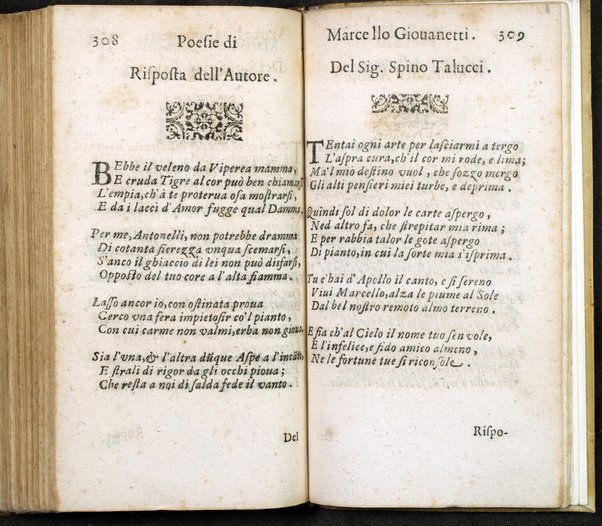 308 Poesie di
Risposta dell'Autore.
BEbbe il veleno da Viperea mamma,
E cruda Tigre al cor può ben chiamarsi,
L'empia, ch'à te proterua osa mostrarsi,
E da i lacci d'Amor fugge qual Damma,
Per me, Antonelli, non potrebbe dramma
Di cotanta fierezza vnqua scemarsi,
S'anco il ghiaccio di lei non può disfarsi,
Opposto del tuo core a l'alta fiamma.
Lasso ancor io, con ostinata proua
Cerco vna fera impietosir co'l pianto,
Con cui carme non valmi, erba non gioua.
Sia l'vna, & l'altra dūque Aspe a l'
E strali di rigor da gli occhi pioua;
Che resta a noi di salda fede il vanto.
Del
Marcello Giouanetti. 309
Del Sig. Spino Talucci.
TEntai ogni arte per lasciarmi a tergo
L'aspra cura, ch'il cor mi rode, e lima;
Ma'l mio destino vuol, che sozzo mergo
Gli alti pensieri miei turbe, e deprima.
Quindi sol di dolor le carte aspergo,
Ned altro fa, che strepitar mia rima;
E per rabbia talor le gote aspergo
Di pianto, in cui la sorte mia s'isprima.
Tu c'hai d'Apollo il canto, e sì sereno
Viui Marcello, alza le piume al Sole
Dal bel nostro remoto almo terreno.
E fia ch'al Cielo il nome tuo sen vole,
E l'infelice, e fido amico almeno,
Ne le fortune tue si riconsole.
Rispo-